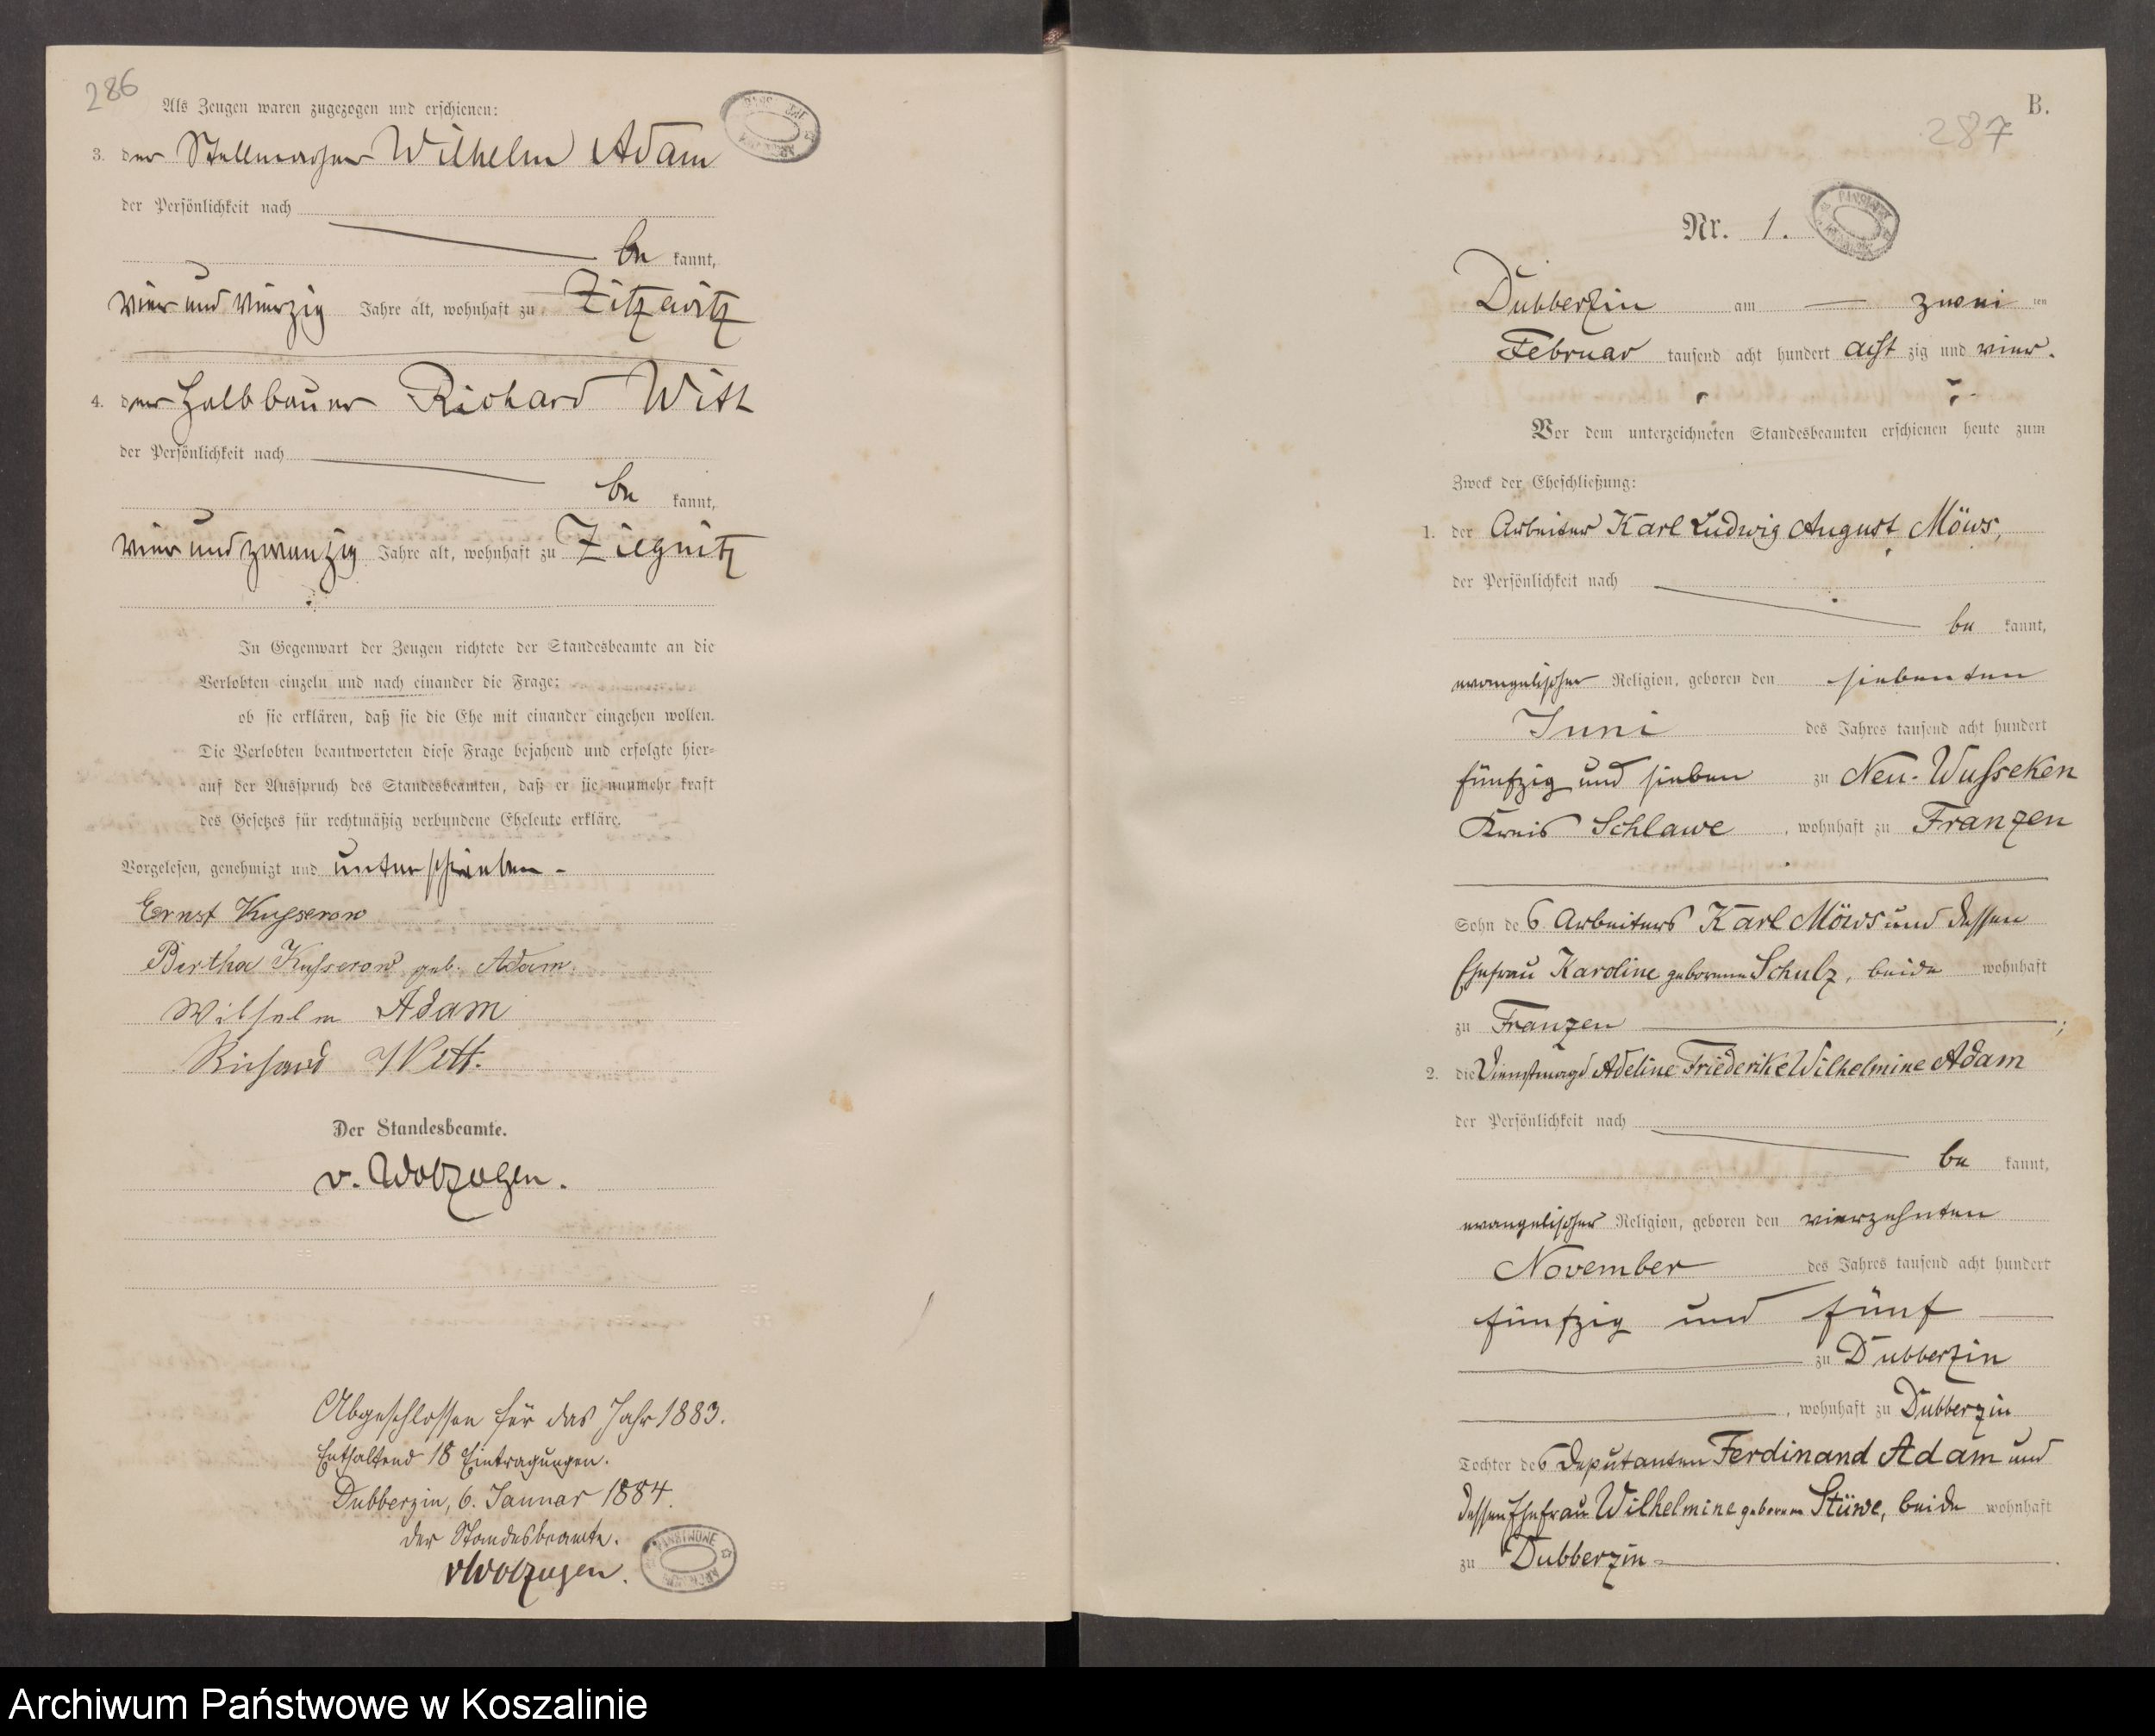 286
Als Zeugen waren zugezogen und erschienen:
3. der Stellmacher Wilhelm Adam
der Persönlichkeit nach
be kannt,
vier und vierzig Jahre alt, wohnhaft zu Zitzewitz
4. der Halbbauer Richard Witt
der Persönlichkeit nach
be kannt,
vier und zwanzig Jahre alt, wohnhaft zu Ziegnitz
In Gegenwart der Zeugen richtete der Standesbeamte an die
Verlobten einzeln und nach einander die Frage:
ob sie erklären, daß sie die Ehe mit einander eingehen wollen.
Die Verlobten beantworteten diese Frage bejahend und erfolgte hier-
auf der Ausspruch des Standesbeamten, daß er sie nunmehr kraft
des Gesetzes für rechtmäßig verbundene Eheleute erkläre.
Vorgelesen, genehmigt und unterschrieben -
Ernst Kusserow
Bertha Kusserow geb. Adam.
Wilhelm Adam
Richard Witt.
Der Standesbeamte.
v. Wolzogen.
Abgeschlossen für das Jahr 1883.
Enthaltend 18 Eintragungen.
Dubberzin, 6. Januar 1884.
Der Standesbeamte.
vWolzogen.
B.
287
Nr. 1.
Dubberzin am — zwei ten
Februar tausend acht hundert acht zig und vier.
Vor dem unterzeichneten Standesbeamten erschienen heute zum
Zweck der Eheschließung:
1. der Arbeiter Karl Ludwig August Möws,
der Persönlichkeit nach
be kannt,
evangelischer Religion, geboren den siebenten
Juni des Jahres tausend acht hundert
fünfzig und sieben zu Neu-Wusseken
Kreis Schlawe, wohnhaft zu Franzen
Sohn des Arbeiters Karl Möws und dessen
Ehefrau Karoline geborene Schulz, beide wohnhaft
zu Franzen ;
2. die Dienstmagd Adeline Friederike Wilhelmine Adam
der Persönlichkeit nach
be kannt,
evangelischer Religion, geboren den vierzehnten
November des Jahres tausend acht hundert
fünfzig und fünf
zu Dubberzin
, wohnhaft zu Dubberzin
Tochter des Deputanten Ferdinand Adam und
dessen Ehefrau Wilhelmine geborene Stüwe, beide wohnhaft
zu Dubberzin
Archiwum Państwowe w Koszalinie